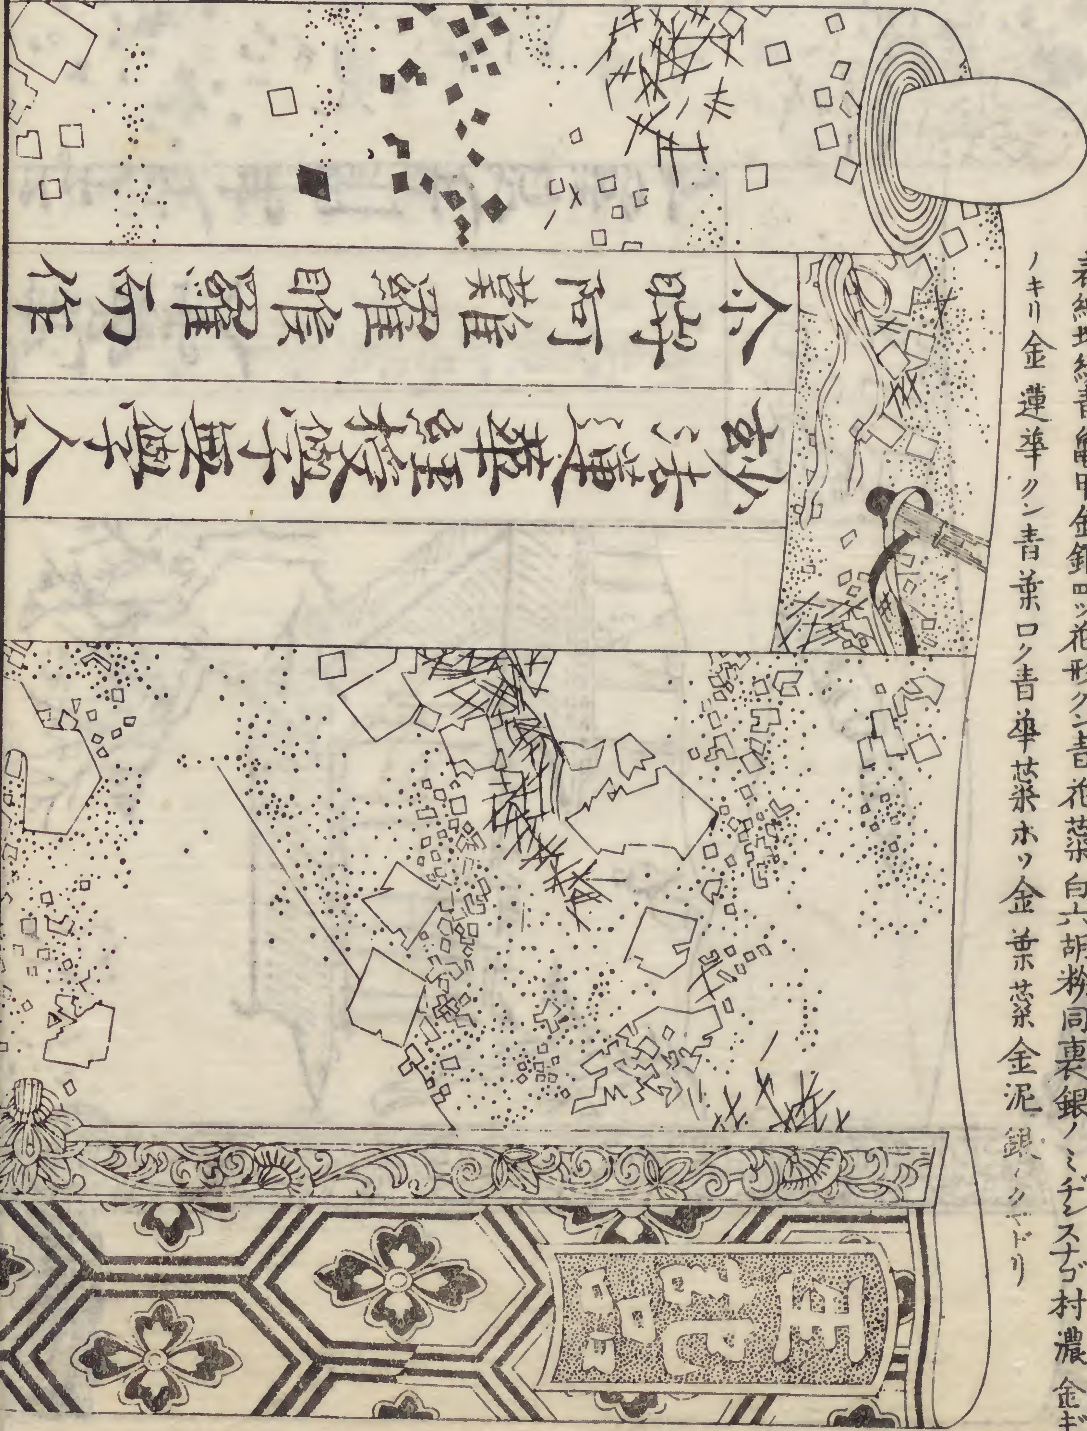 表紙地紺青亀甲金銀四ツ花形クン青花蘂白六胡粉同裏銀ノミヂンスナゴ村濃金ギ
ノキリ金蓮華クン青葉ロク青華蘂ホソ金葉蘂金泥銀ノクマドリ
妙法蓮華經授學無學人記
尒時阿難羅睺羅而作